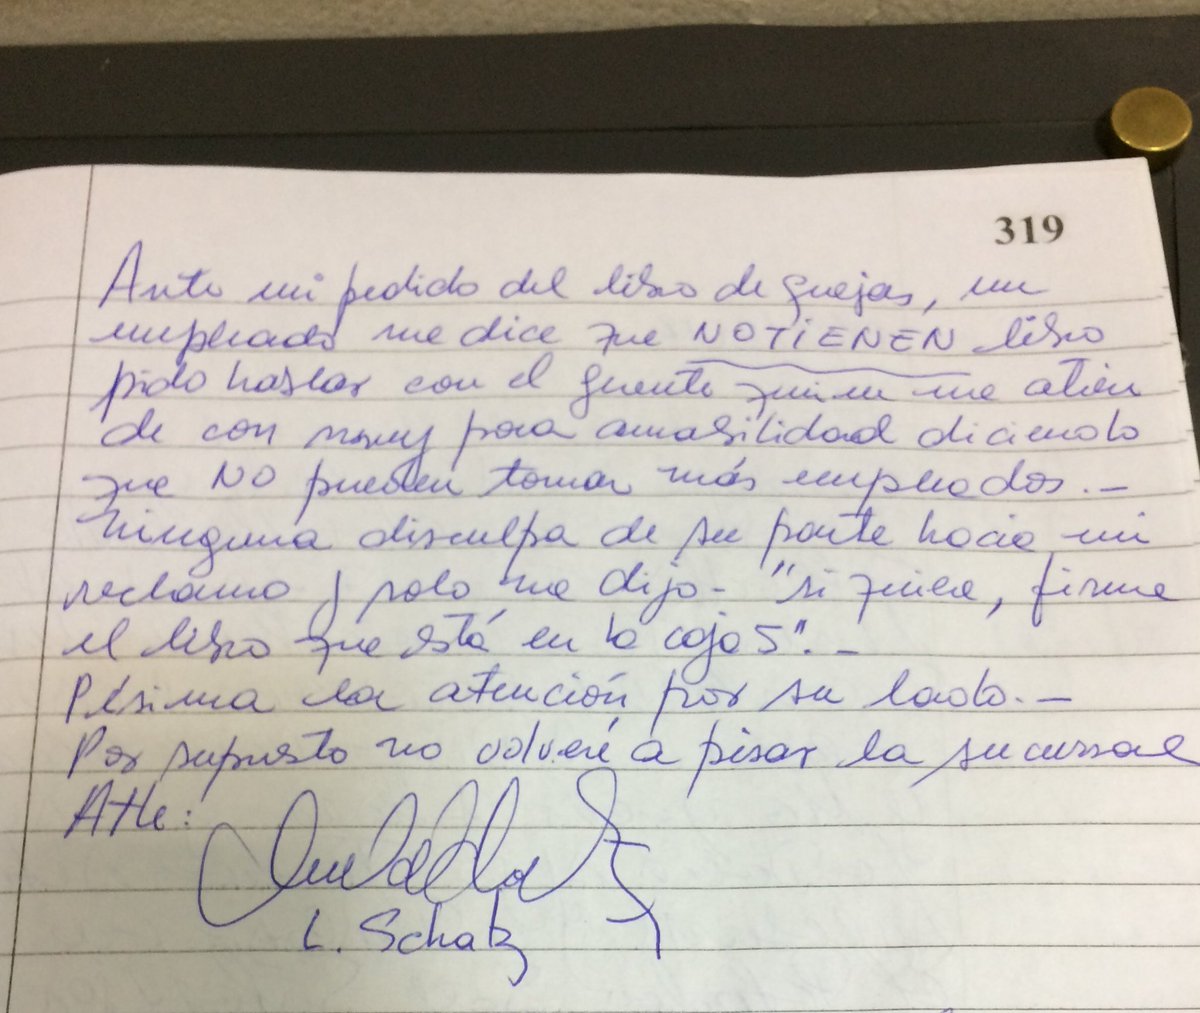 319
Ante mi pedido del libro de quejas, un
empleado me dice que NO TIENEN libro
pido hablar con el gerente quien me atien
de con muy poca amabilidad diciendo
que NO pueden tomar más empleados.-
Ninguna disculpa de su parte hacia mi
reclamo y solo me dijo- "si quiere, firme
el libro que está en la caja 5".-
Pésima la atención por su lado.-
Por supuesto no volveré a pisar la sucursal
Atte:
L. Schatz